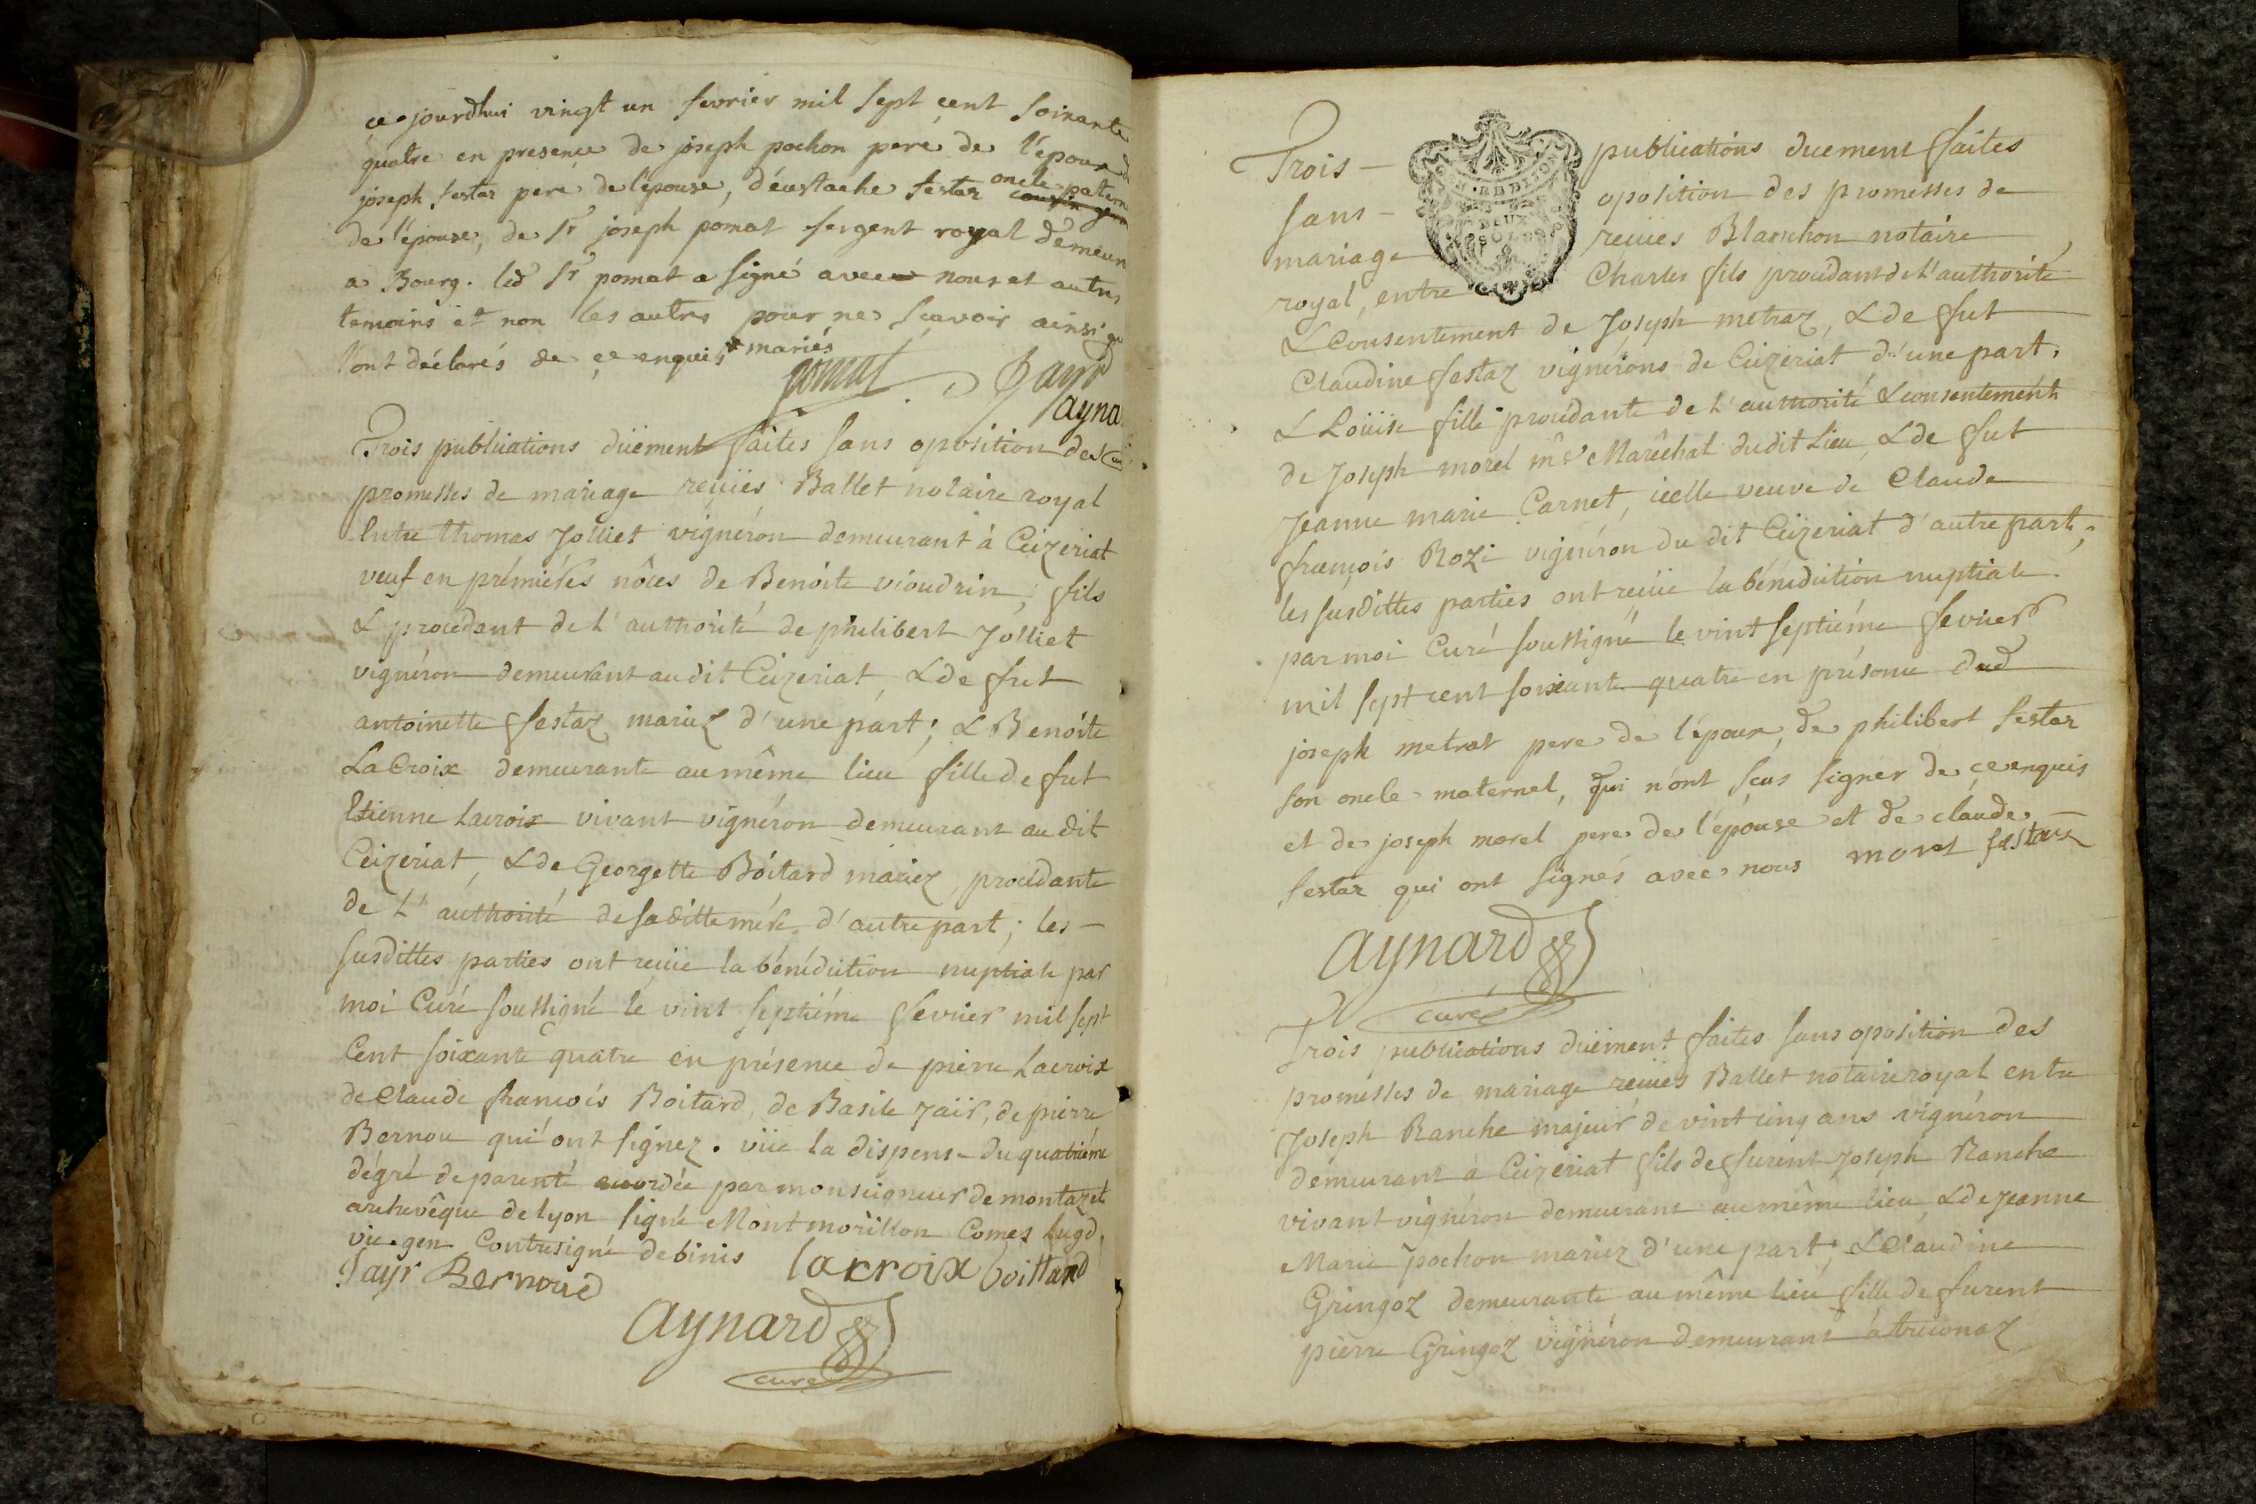 ce jourdhui vingt un fevrier mil sept cent soixante
quatre en presence de joseph pochon pere de l'epoux de
joseph festar pere de l'epouse, d'eustache festar oncle patern
de l'epouse, de Sr joseph pomat sergent royal demeur
a Bourg. led Sr pomat a signé avec nous et autres
temoins et non les autres pour ne sçavoir ainsi qu
l'ont déclarés de ce enquis * mariés
pomat Jayr
Ayna
Trois publications düement faites sans oposition des
promesses de mariage reçuës Ballet notaire royal
Entre thomas Jolliet vignéron demeurant à Ceizeriat
veuf en prémiéres nôces de Benoite vioudrin, fils
& procedant de l'authorité de philibert Jolliet
vignéron demeurant au dit Ceizeriat, & de fut
antoinette festaz mariez d'une part; & Benoite
LaCroix demeurante au même lieu fille de fut
Etienne Lacroix vivant vignéron demeurant au dit
Ceizeriat, & de Georgette Boitard mariez, procédante
de l'authorité de sa ditte mére d'autre part; les
susdittes parties ont reçuë la bénédiction nuptiale par
moi Curé soussigné le vint septiéme févriér mil sept
Cent soixante quatre en présence de pierre Lacroix
de Claude françois Boitard, de Basile Jair, de pierre
Bernou qui ont signez. vüe la dispense du quatriéme
dégré de parenté accordée par monseigneur de montazet
archevêque de lyon signé Montmorillon Comes Lugd.
vic. gen Contresigné debinis lacroix boittard
Jayr Bernoud
Aynard
curé
Trois publications duement faites
sans oposition des promesses de
mariage reçuës Blanchon notaire
royal, entre Charles fils procédant de l'authorité
& Consentement de Joseph metraz, & de fut
Claudine festaz vignérons de Ceizeriat d'une part,
& Loüise fille procédante de l'authorité & consentement
de Joseph morel me Marêchal dudit Lieu, & de fut
Jeanne marie Carnet, icelle veuve de Claude
françois Rozi vignéron du dit Ceizeriat d'autre part,
les susdittes parties ont reçuë la bénédiction nuptiale
par moi Curé soussigné le vint septiéme fevrier
mil sept cent soixante quatre en présence dud
joseph metrat pere de l'epoux, de philibert festar
son oncle maternel, qui n'ont sçus signer de ce enquis
et de joseph morel pere de l'épouse et de claude
festar qui ont signés avec nous morel festaz
Aynard
curé
Trois publications düement faites sans oposition des
promesses de mariage reçuës Ballet notaire royal entre
Joseph Ranche majeur de vint cinq ans vignéron
demeurant à Ceizeriat fils de furent Joseph Ranche
vivant vignéron demeurant au même lieu, & de Jeanne
Marie pochon mariez d'une part; & Claudine
Gringoz demeurante au même lieu fille de furent
pierre Gringoz vignéron demeurant à treconaz